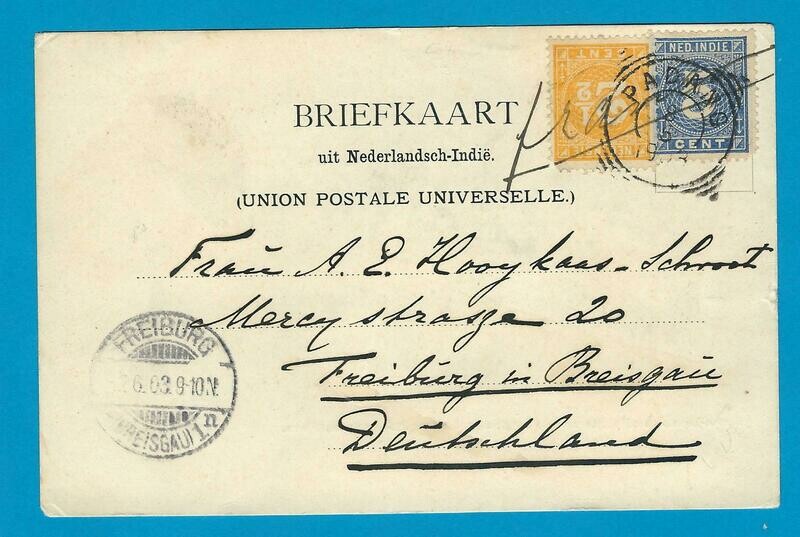 NED. INDIE
CENT
CENT
PADANG
fra
BRIEFKAART
uit Nederlandsch-Indië.
(UNION POSTALE UNIVERSELLE.)
Frau A. E. Hooykaas-Schroot
Mercystrasze 20
Freiburg in Breisgau
Deutschland
FREIBURG
6.03.9-10N.
(BREISGAU) 1n